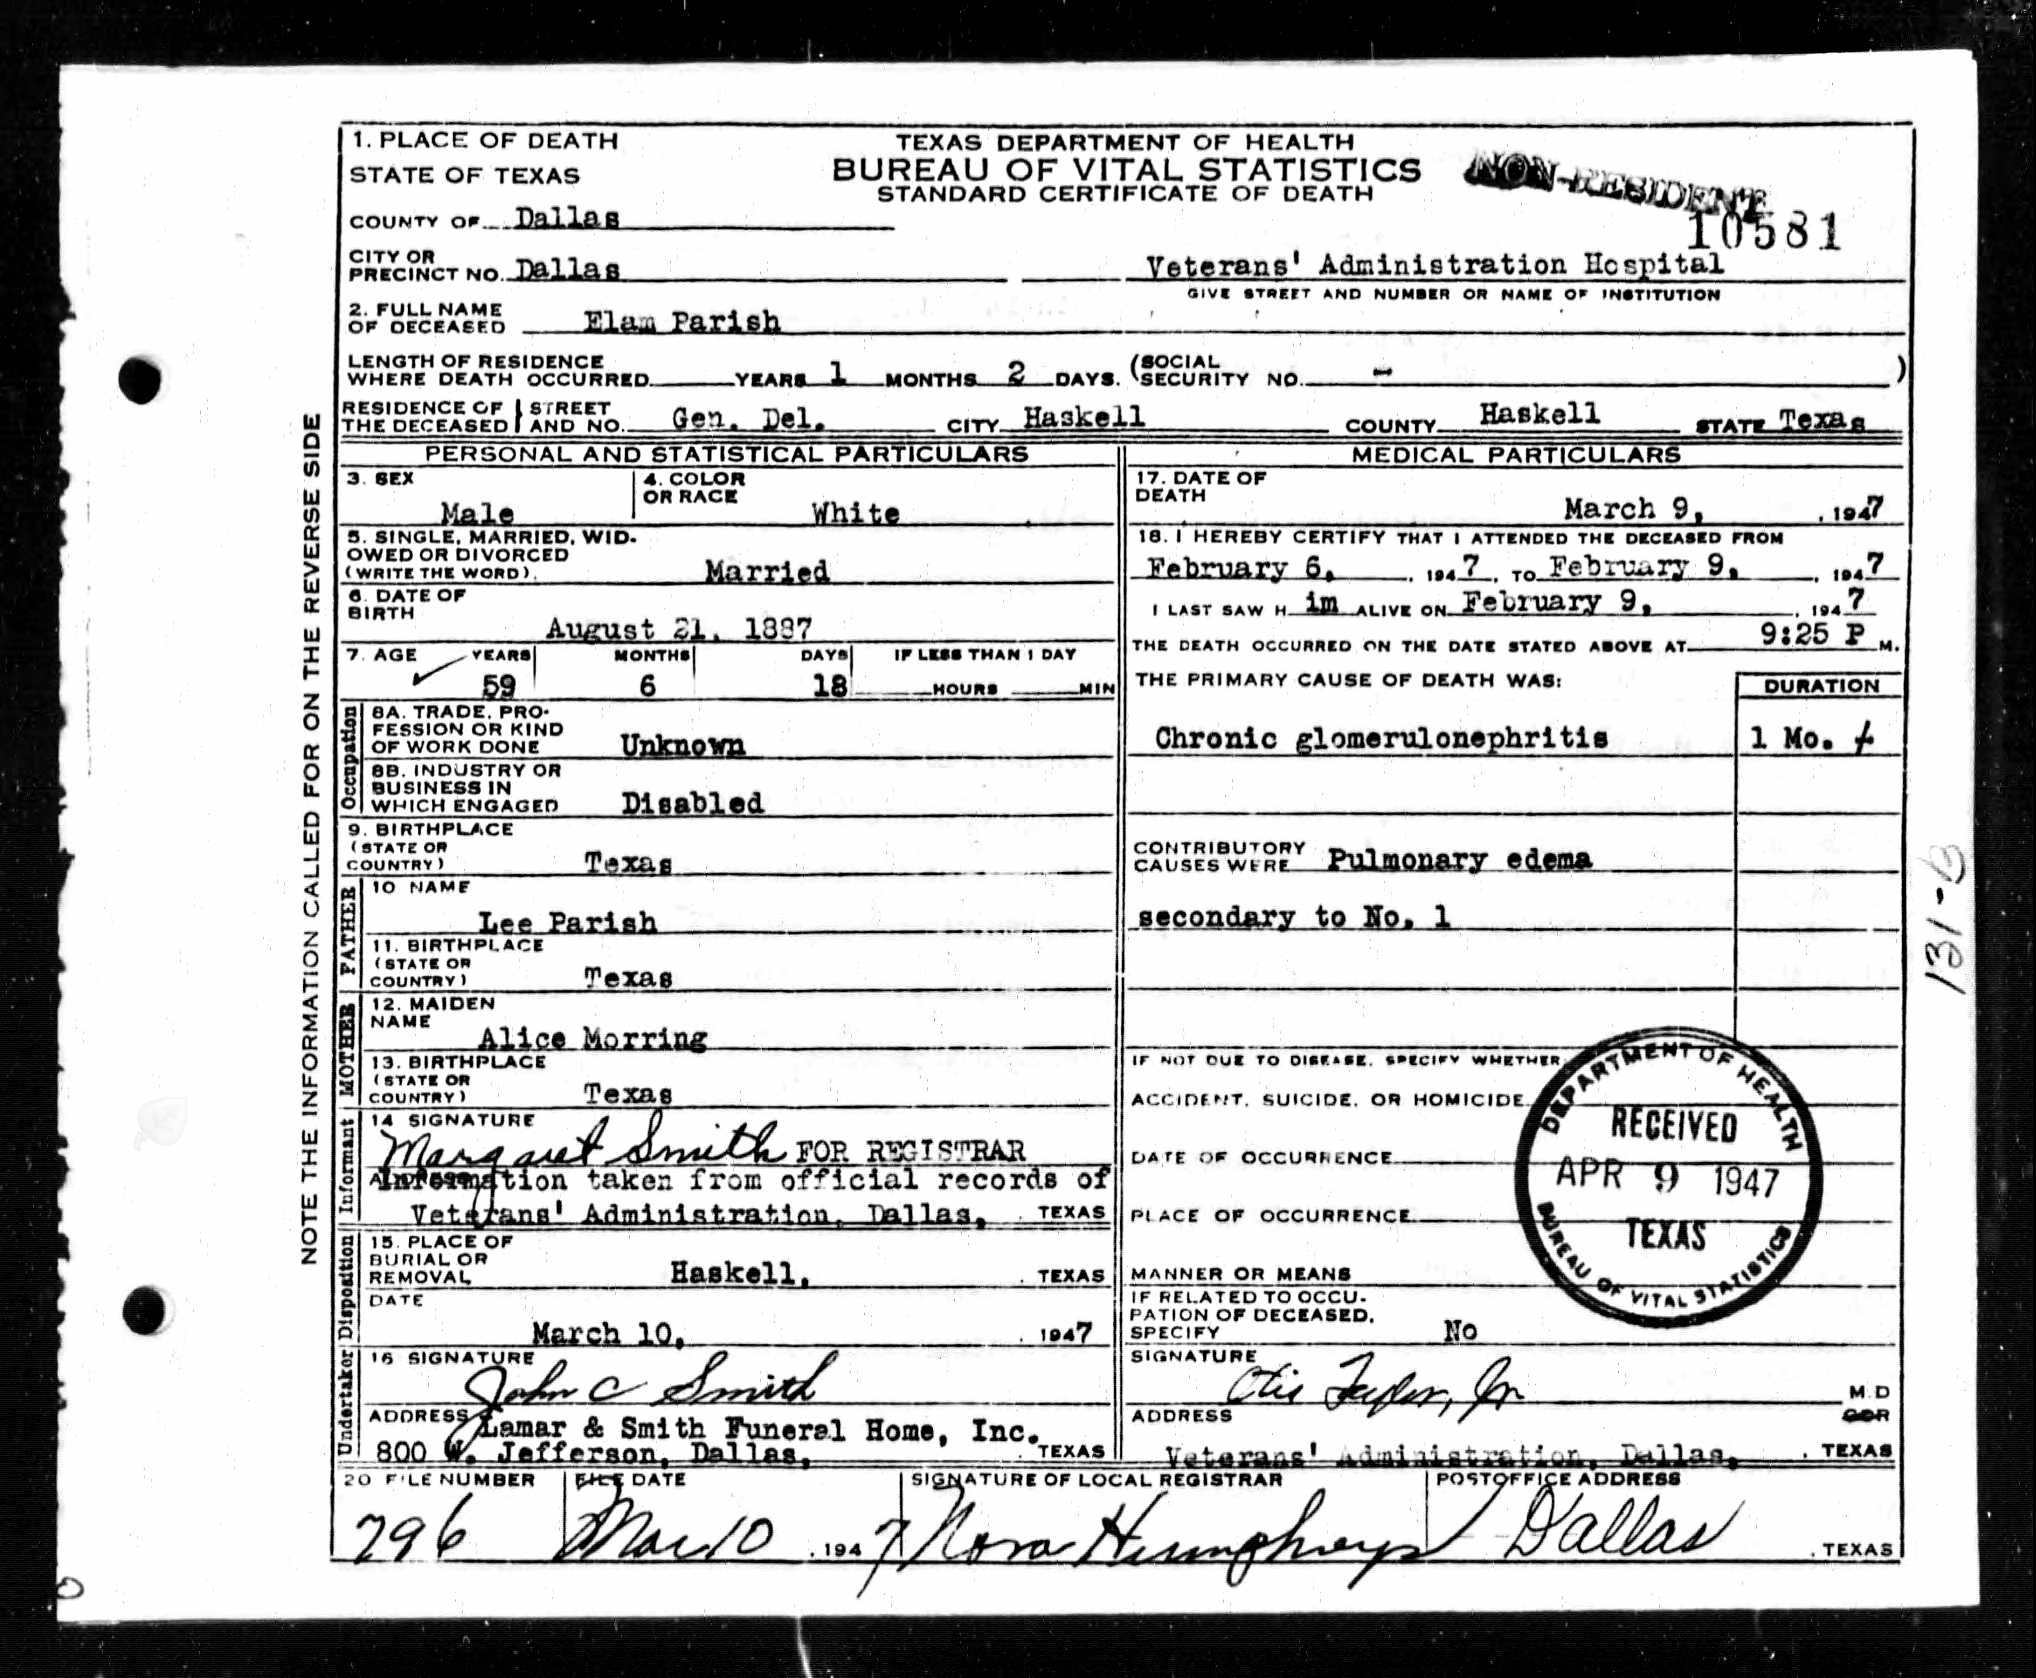 1. PLACE OF DEATH
STATE OF TEXAS
COUNTY OF Dallas
CITY OR PRECINCT NO. Dallas
TEXAS DEPARTMENT OF HEALTH
BUREAU OF VITAL STATISTICS
STANDARD CERTIFICATE OF DEATH
NON-RESIDENT
10581
Veterans' Administration Hospital
GIVE STREET AND NUMBER OR NAME OF INSTITUTION
2. FULL NAME OF DECEASED Elam Parish
LENGTH OF RESIDENCE WHERE DEATH OCCURRED YEARS 1 MONTHS 2 DAYS. (SOCIAL SECURITY NO. - )
RESIDENCE OF THE DECEASED STREET AND NO. Gen. Del. CITY Haskell COUNTY Haskell STATE Texas
PERSONAL AND STATISTICAL PARTICULARS
3. SEX Male
4. COLOR OR RACE White
5. SINGLE, MARRIED, WIDOWED OR DIVORCED
(WRITE THE WORD) Married
6. DATE OF BIRTH August 21, 1887
7. AGE YEARS MONTHS DAYS IF LESS THAN 1 DAY
59 6 18 HOURS MIN
Occupation
8A. TRADE, PROFESSION OR KIND OF WORK DONE Unknown
8B. INDUSTRY OR BUSINESS IN WHICH ENGAGED Disabled
9. BIRTHPLACE (STATE OR COUNTRY) Texas
FATHER
10 NAME Lee Parish
11. BIRTHPLACE (STATE OR COUNTRY) Texas
MOTHER
12. MAIDEN NAME Alice Morring
13. BIRTHPLACE (STATE OR COUNTRY) Texas
Informant
14 SIGNATURE
Margaret Smith FOR REGISTRAR
Information taken from official records of
Veterans' Administration, Dallas, TEXAS
Disposition
15. PLACE OF BURIAL OR REMOVAL Haskell, TEXAS
DATE March 10, 1947
Undertaker
16 SIGNATURE John C Smith
ADDRESS Lamar & Smith Funeral Home, Inc.
800 W. Jefferson, Dallas, TEXAS
MEDICAL PARTICULARS
17. DATE OF DEATH March 9, 1947
18. I HEREBY CERTIFY THAT I ATTENDED THE DECEASED FROM
February 6, 1947, TO February 9, 1947
I LAST SAW H im ALIVE ON February 9, 1947
THE DEATH OCCURRED ON THE DATE STATED ABOVE AT 9:25 P M.
THE PRIMARY CAUSE OF DEATH WAS: DURATION
Chronic glomerulonephritis 1 Mo. +
CONTRIBUTORY CAUSES WERE Pulmonary edema
secondary to No. 1
IF NOT DUE TO DISEASE, SPECIFY WHETHER
ACCIDENT, SUICIDE, OR HOMICIDE
DATE OF OCCURRENCE
PLACE OF OCCURRENCE
MANNER OR MEANS
IF RELATED TO OCCUPATION OF DECEASED, SPECIFY No
SIGNATURE Otis Taylor, Jr M D
ADDRESS COR
Veterans' Administration, Dallas, TEXAS
DEPARTMENT OF HEALTH
RECEIVED
APR 9 1947
TEXAS
BUREAU OF VITAL STATISTICS
20 FILE NUMBER FILE DATE SIGNATURE OF LOCAL REGISTRAR POSTOFFICE ADDRESS
796 Mar 10, 1947 Nora Humphreys Dallas, TEXAS
NOTE THE INFORMATION CALLED FOR ON THE REVERSE SIDE
131-B